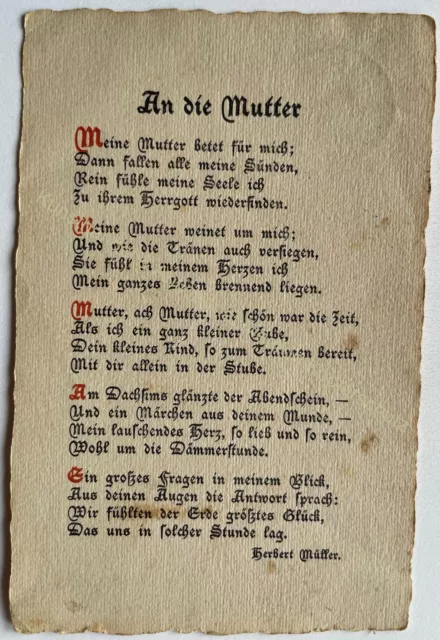 An die Mutter
Meine Mutter betet für mich;
Dann fallen alle meine Sünden,
Rein fühle meine Seele ich
Zu ihrem Herrgott wiederfinden.
Meine Mutter weinet um mich;
Und wie die Tränen auch versiegen,
Sie fühl in meinem Herzen ich
Mein ganzes Leben brennend liegen.
Mutter, ach Mutter, wie schön war die Zeit,
Als ich ein ganz kleiner Bube,
Dein kleines Kind, so zum Träumen bereit,
Mit dir allein in der Stube.
Am Dachsims glänzte der Abendschein, —
Und ein Märchen aus deinem Munde, —
Mein lauschendes Herz, so lieb und so rein,
Wohl um die Dämmerstunde.
Ein großes Fragen in meinem Blick,
Aus deinen Augen die Antwort sprach:
Wir fühlten der Erde größtes Glück,
Das uns in solcher Stunde lag.
Herbert Müller.